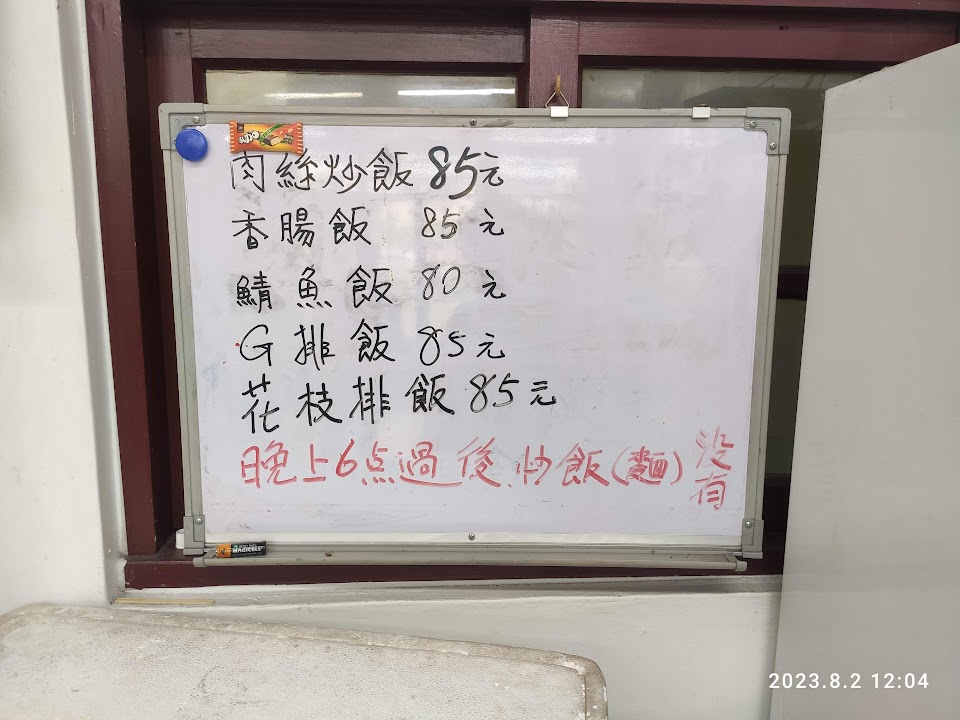 肉絲炒飯 85元
香腸飯 85元
鯖魚飯 80元
G排飯 85元
花枝排飯 85元
晚上6点過後炒飯(麵)没有
MAGICELL
2023.8.2 12:04